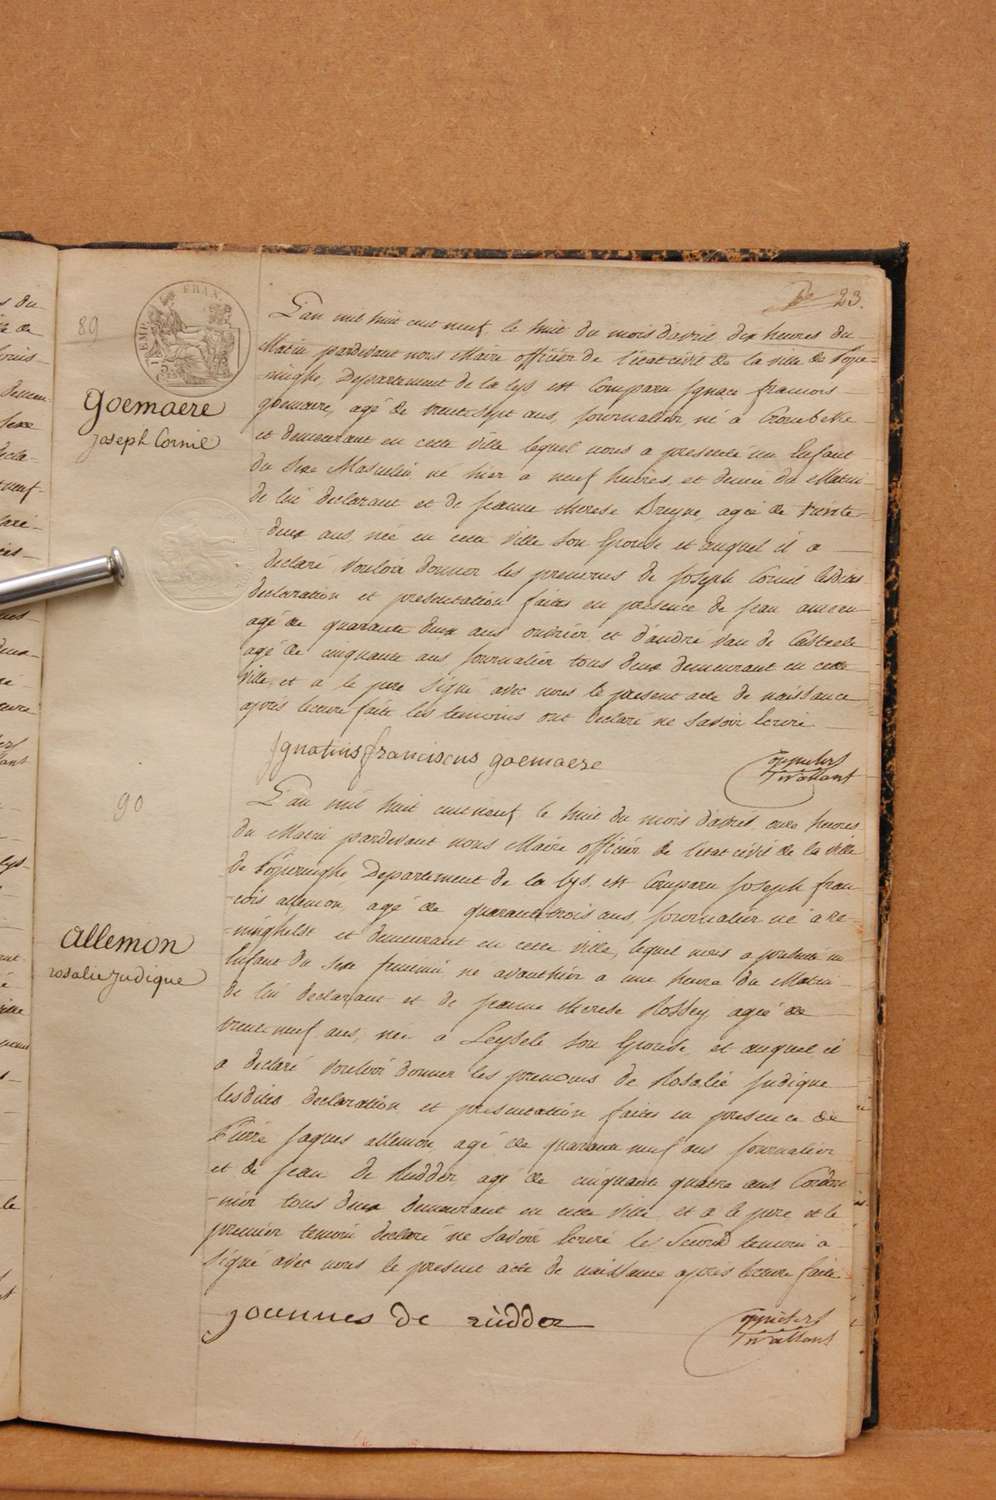 23.
89
EMP. FRAN.
Goemaere
Joseph Cornil
L'an mil huit cent neuf, le huit du mois d'avril dix heures du
Matin pardevant nous Maire officier de l'etat civil de la ville de Pope-
-ringhe, Departement de la Lys, est Comparu Ignace francois
goemaere, agé de trente sept ans, Journalier, né a Crombeke
et demeurant en cette ville lequel nous a presenté un Enfant
du Sexe Masculin, né hier a neuf heures, et demie du Matin
de lui declarant et de Jeanne therese Bruyne, agée de trente-
-deux ans, née en cette ville son Epouse et auquel il a
declaré vouloir donner les prenoms de Joseph Cornil lesdites
declaration et presentation faites en presence de Jean
agé de quarante deux ans ouvrier, et d'andré van de Casteele
agé de cinquante ans Journalier tous deux demeurant en cette
ville, et a le pere signé avec nous le present acte de naissance
après lecture faite les temoins ont declaré ne savoir Ecrire
Ignatius franciscus goemaere
90
Allemon
rosalie Judique
L'an mil huit cent neuf, le huit du mois d'avril onze heures
du Matin pardevant nous Maire officier de l'etat civil de la ville
de Poperinghe, Departement de la Lys, est Comparu Joseph fran-
-cois allemon, agé de quarante trois ans, Journalier né a re-
-ninghelst et demeurant en cette ville, lequel nous a presenté un
Enfant du Sexe feminin, né avant hier a une heure du Matin
de lui declarant et de Jeanne therese Rossey agée de
trente neuf ans, née a Leysele son Epouse, et auquel il
a declaré vouloir donner les prenoms de Rosalie Judique
lesdites declaration et presentation faites en presence de
Pierre Jaques allemon agé de quarante neuf ans Journalier
et de Jean de Rudder, agé de cinquante quatre ans Cordon-
-nier tous deux demeurant en cette ville et a le pere et le
premier temoin declaré ne savoir Ecrire le second temoin a
signé avec nous le present acte de naissance après lecture faite
joannes de rudder